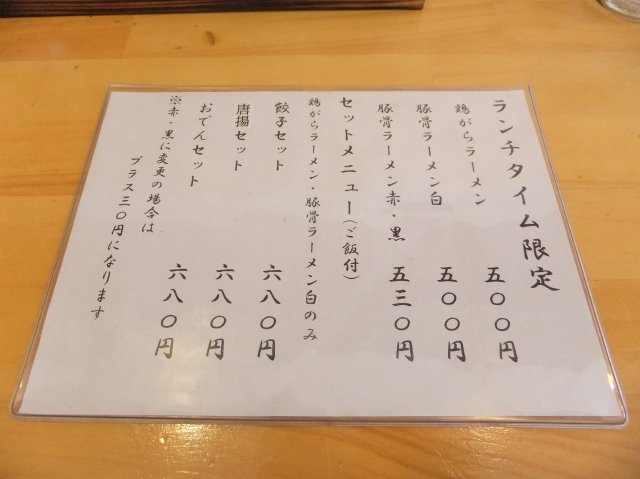 ランチタイム限定
鶏がらラーメン 五〇〇円
豚骨ラーメン白 五〇〇円
豚骨ラーメン赤・黒 五三〇円
セットメニュー(ご飯付)
鶏がらラーメン・豚骨ラーメン白のみ
餃子セット 六八〇円
唐揚セット 六八〇円
おでんセット 六八〇円
※赤・黒に変更の場合は
プラス三〇円になります